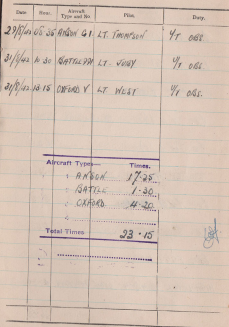 Date Hour Aircraft Type and No Pilot. Duty.
29/8/42 08·35 ANSON G1 LT. THOMPSON U/T OBS.
31/8/42 10·30 BATTLE LT. JUBY U/T OBS.
31/8/42 18·15 OXFORD V LT WEST U/T OBS.
Aircraft Types— Times.
: ANSON 17·25
: BATTLE 1·30
: OXFORD 4·20
Total Times 23·15